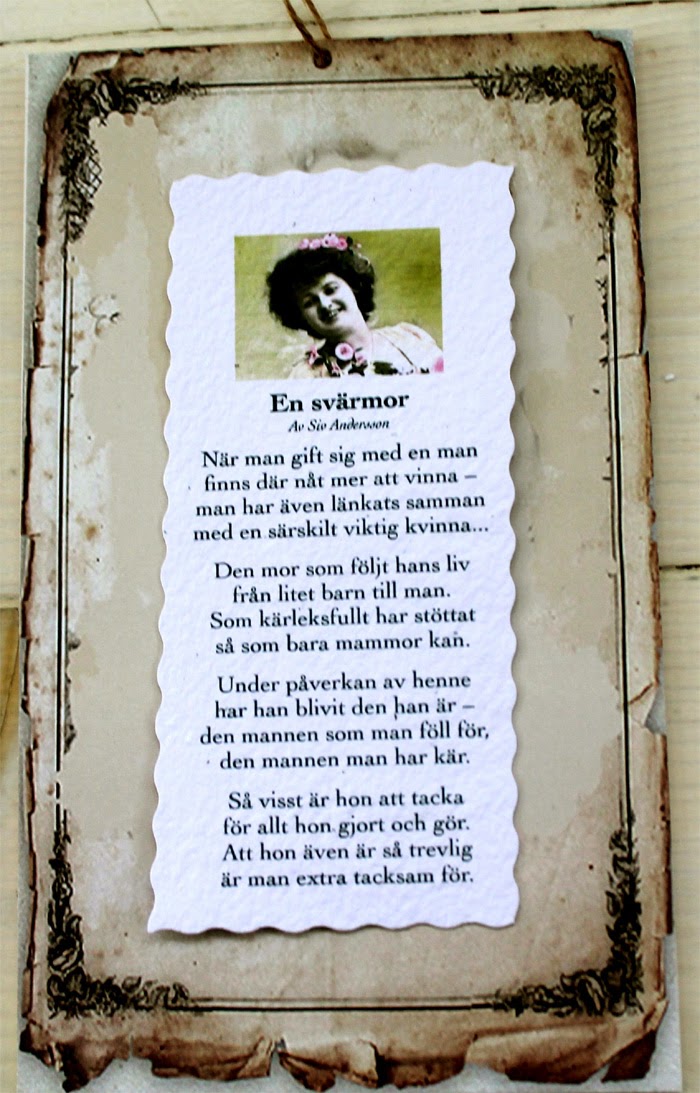 En svärmor
Av Siv Andersson
När man gift sig med en man
finns där nåt mer att vinna –
man har även länkats samman
med en särskilt viktig kvinna...
Den mor som följt hans liv
från litet barn till man.
Som kärleksfullt har stöttat
så som bara mammor kan.
Under påverkan av henne
har han blivit den han är –
den mannen som man föll för,
den mannen man har kär.
Så visst är hon att tacka
för allt hon gjort och gör.
Att hon även är så trevlig
är man extra tacksam för.